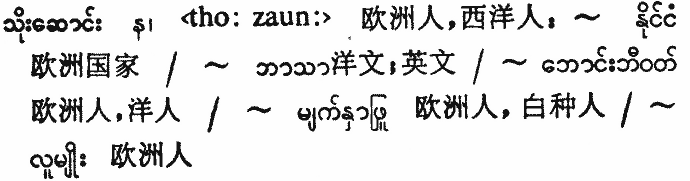 သိုးဆောင်း န၊ <tho: zaun:> 欧洲人,西洋人: ~ နိုင်ငံ
欧洲国家 / ~ ဘာသာ洋文;英文 / ~ ဘောင်းဘီဝတ်
欧洲人,洋人 / ~ မျက်နှာဖြူ 欧洲人, 白种人 / ~
လူမျိုး 欧洲人